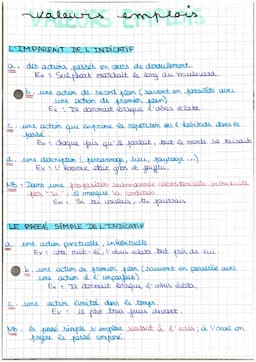 valeurs emplois
L'IMPARFAIT DE L'INDICATIF
a. des actions passées en cours de déroulement.
Ex : Suéphart marchait le long du boulevard.
b. une action de second plan (souvent en parallèle avec
une action de premier plan)
Ex : Il dormait lorsque l'obus éclata.
c. une action qui exprime la répétition ou l'habitude dans le
passé.
Ex : chaque fois qu'il parlait, tout le monde se taisait
d. une description (personnage, lieu, paysage...)
Ex : L'homme était gros et joufflu.
Nb : Dans une proposition subordonnée circonstancielle introduite
par "Si", il marque la condition.
Ex : Si tu voulais, tu pourrais
LE PASSÉ SIMPLE DE L'INDICATIF
a. une action ponctuelle, inhabituelle
Ex : cette nuit-là, l'obus éclata tout près de lui.
b. une action de premier plan (souvent en parallèle avec
une action à l'imparfait)
Ex : Il dormait lorsque l'obus éclata.
c. une action limitée dans le temps.
Ex : le père trois jours durant.
Nb : le passé simple s'emploie surtout à l'écrit, à l'oral on
le passé composé.